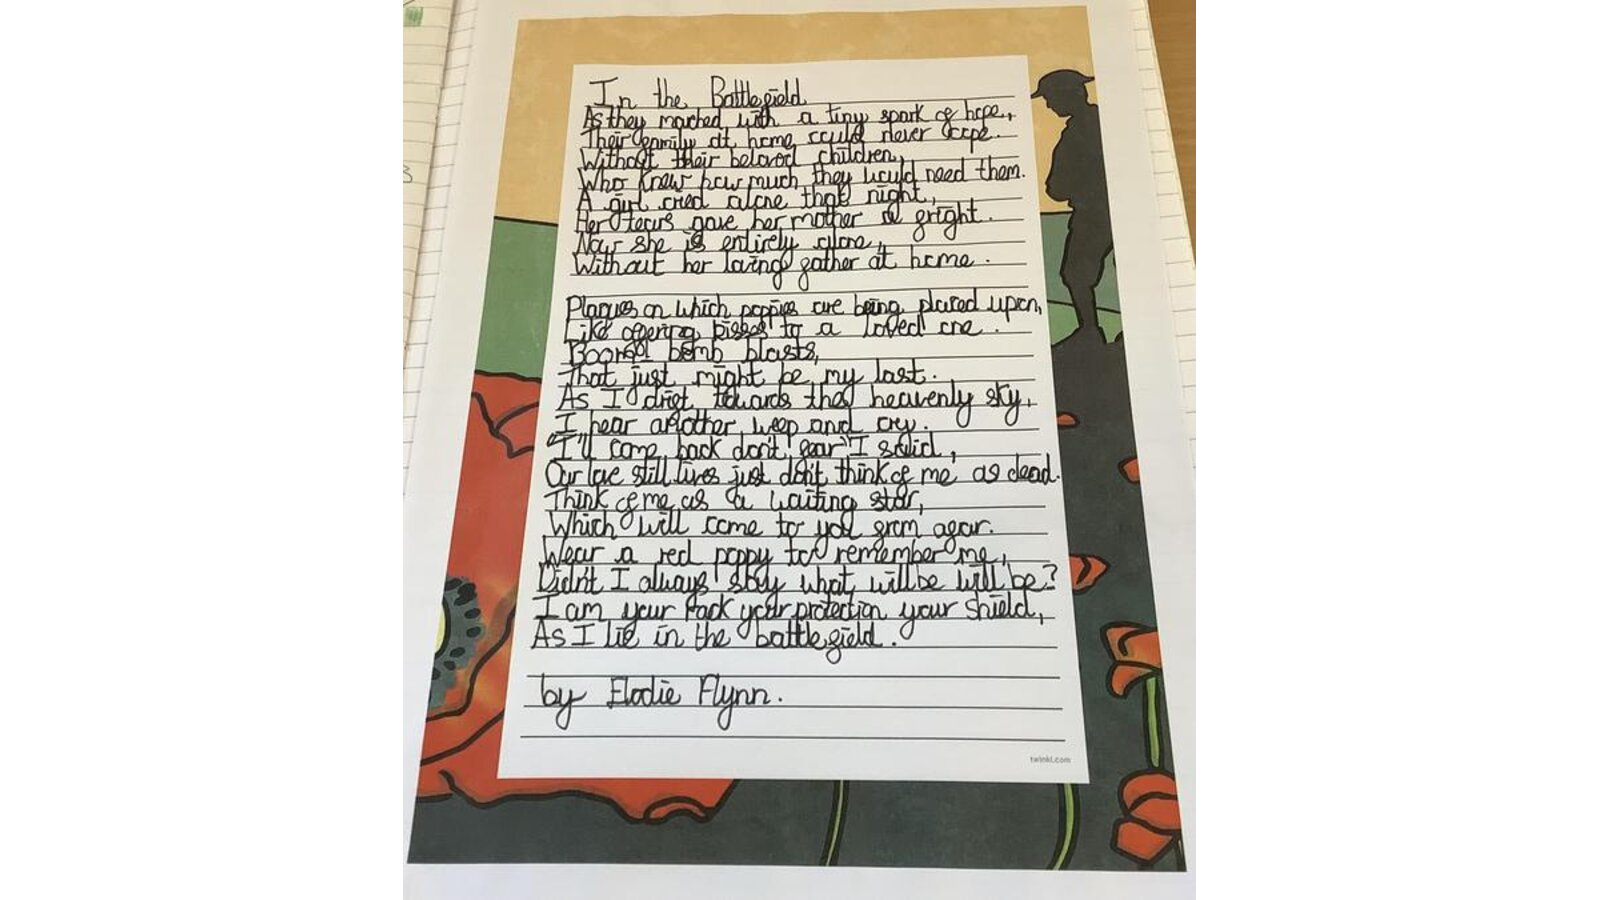 In the Battlefield
As they marched with a tiny spark of hope,
Their family at home could never cope.
Without their beloved children,
Who knew how much they would need them.
A girl cried alone that night,
Her tears gave her mother a fright.
Now she is entirely alone,
Without her loving father at home.
Plaques on which poppies are being placed upon,
Like offering kisses to a loved one.
Boom! bomb blasts,
That just might be my last.
As I drift towards the heavenly sky,
I hear another weep and cry.
"I'll come back don't fear" I said,
Our love still lives just don't think of me as dead.
Think of me as a waiting star,
Which will come to you from afar.
Wear a red poppy to remember me,
Didn't I always say what will be will be?
I am your rock your protection your shield,
As I lie in the battlefield.
by Elodie Flynn.
twinkl.com